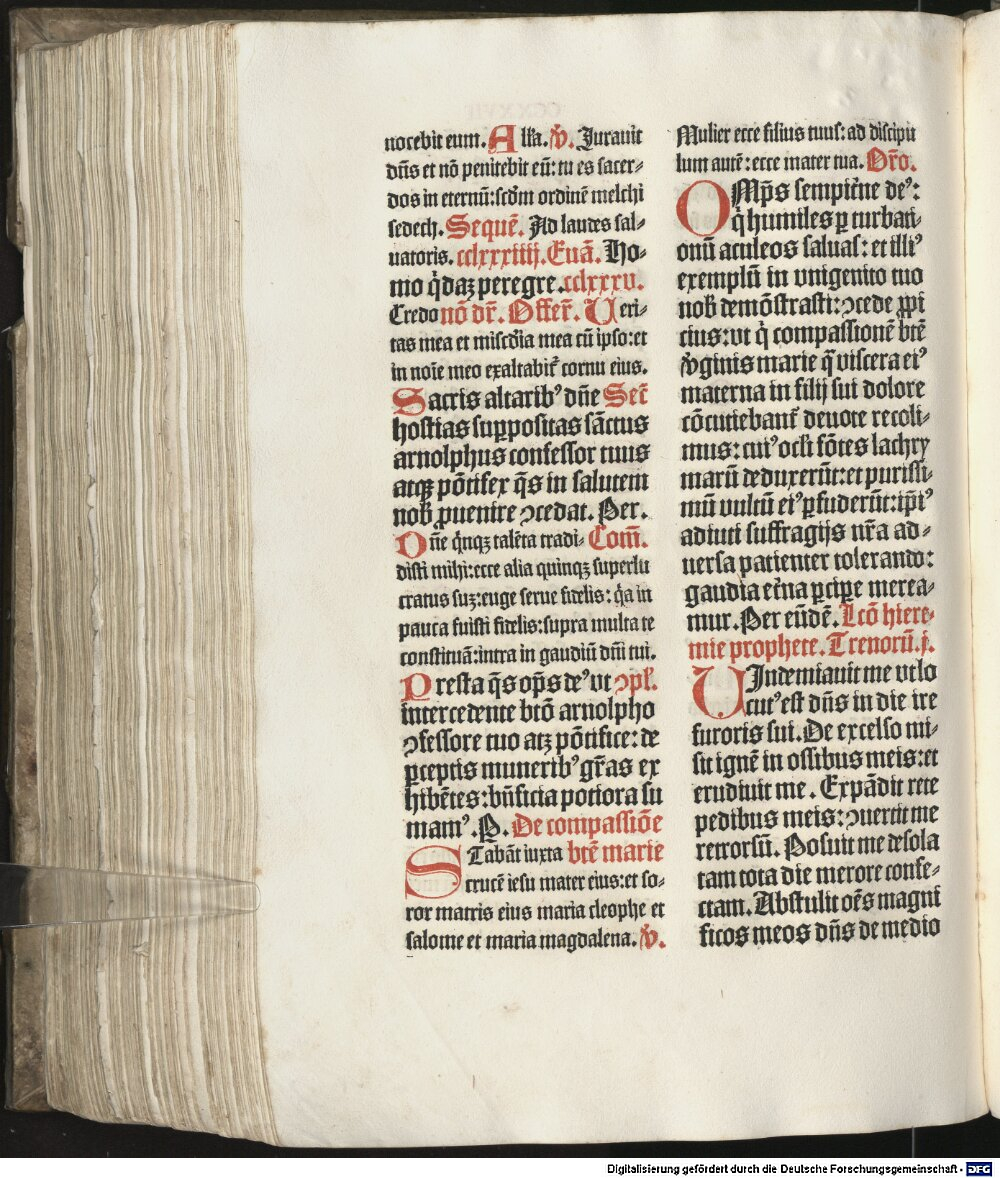 nocebit eum. Alla. ℣. Jurauit
dñs et nõ penitebit eũ: tu es sacer-
dos in eternũ: scðm ordinẽ melchi
sedech. Sequẽ. Ad laudes sal-
uatoris. cclxxxiiij. Euã. Ho-
mo q̇daꝫ peregre. cclxxxv.
Credo nõ dr̃. Offer̃. Ueri-
tas mea et miscðia mea cũ ipso: et
in noĩe meo exaltabit̃ cornu eius.
Sacris altaribꝰ dñe Secr̃
hostias suꝑpositas sãctus
arnolphus confessor tuus
atqꝫ põtifex q̃s in salutem
nob̃ ꝓuenire ꝯcedat. Per.
Dñe q̇nqꝫ talẽta tradi- Com̃.
disti mihi: ecce alia quinqꝫ superlu
cratus suꝫ: euge serue fidelis: q̇a in
pauca fuisti fidelis: supra multa te
constituã: intra in gaudiũ dñi tui.
Presta q̃s op̃s deꝰ vt ꝯpl̃.
intercedente btõ arnolpho
ꝯfessore tuo atqꝫ põtifice: de
ꝑceptis muneribꝰ gr̃as ex
hibẽtes: bñficia potiora su
mamꝰ. P. De compassiõe
Stabãt iuxta btẽ marie
crucẽ iesu mater eius: et so-
ror matris eius maria cleophe et
salome et maria magdalena. ℣.
Mulier ecce filius tuus: ad discipu
lum autẽ: ecce mater tua. Or̃o.
OMp̃s sempitẽne deꝰ:
q̇ humiles ꝑ turbati-
onũ aculeos saluas: et illiꝰ
exemplũ in vnigenito tuo
nob̃ demõstrasti: ꝯcede ꝓpi
cius: vt q̇ compassionẽ btẽ
v̇ginis marie q̃ viscera eiꝰ
materna in filij sui dolore
cõcutiebant̃ deuote recoli-
mus: cuiꝰ oc̃li fõtes lachry
marũ deduxerũt: et purissi-
mũ vultũ eiꝰ ꝑfuderũt: ip̃iꝰ
adiuti suffragijs nr̃a ad-
uersa patienter tolerando:
gaudia etẽna ꝑciꝑe merea-
mur. Per eũdẽ. Lcõ hiere-
mie prophete. Trenorũ. j.
UJndemiauit me vt lo
cutꝰ est dñs in die ire
furoris sui. De excelso mi-
sit ignẽ in ossibus meis: et
erudiuit me. Expãdit rete
pedibus meis: ꝯuertit me
retrorsũ. Posuit me desola
tam tota die merore confe-
ctam. Abstulit oẽs magni
ficos meos dñs de medio
Digitalisierung gefördert durch die Deutsche Forschungsgemeinschaft - DFG